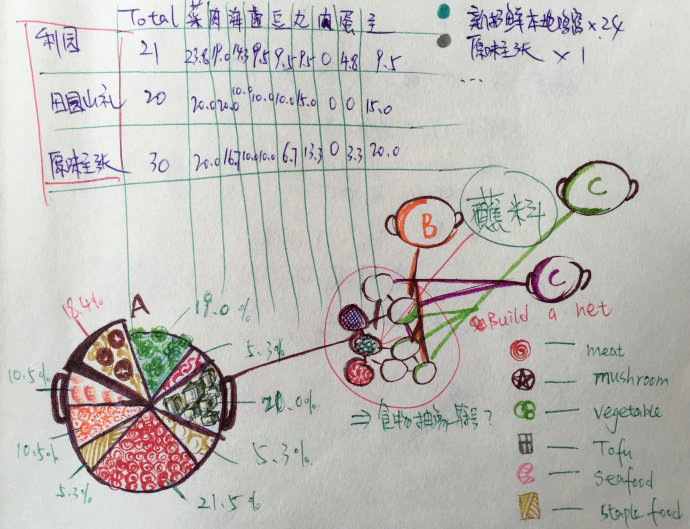 Total 菜 肉 海 菌 豆 丸 内 蛋 主
利园 21 23.8 19.0 14.3 9.5 9.5 9.5 0 4.8 9.5
田园山礼 20 20.0 20.0 10.0 10.0 10.0 15.0 0 0 15.0
原味主张 30 20.0 16.7 10.0 10.0 6.7 13.3 0 3.3 20.0
× 24
原味主张 × 1
...
B
蘸料
C
C
A
18.4%
19.0%
5.3%
10.5%
20.0%
10.5%
5.3%
5.3%
21.5%
Build a net
⇒ 食物抽象符号?
meat
mushroom
vegetable
Tofu
seafood
staple food